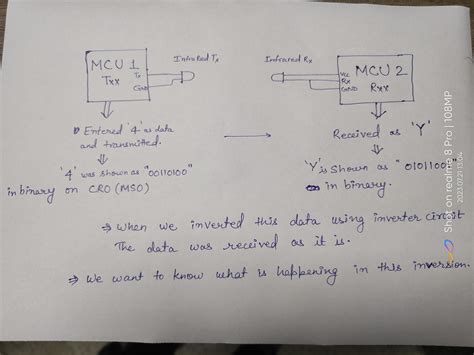 MCU 1
Txx
Tx
GND
Infrared Tx
Infrared Rx
Vcc
Rx
GND
MCU 2
Rxx
Entered '4' as data
and transmitted.
'4' was shown as "00110100"
in binary on CRO (MSO)
Received as 'Y'
'Y' is shown as "01011001
in binary.
⇒ when we inverted this data using inverter circuit
The data was received as it is.
⇒ we want to know what is happening in this inversion.
Shot on realme 8 Pro | 108MP